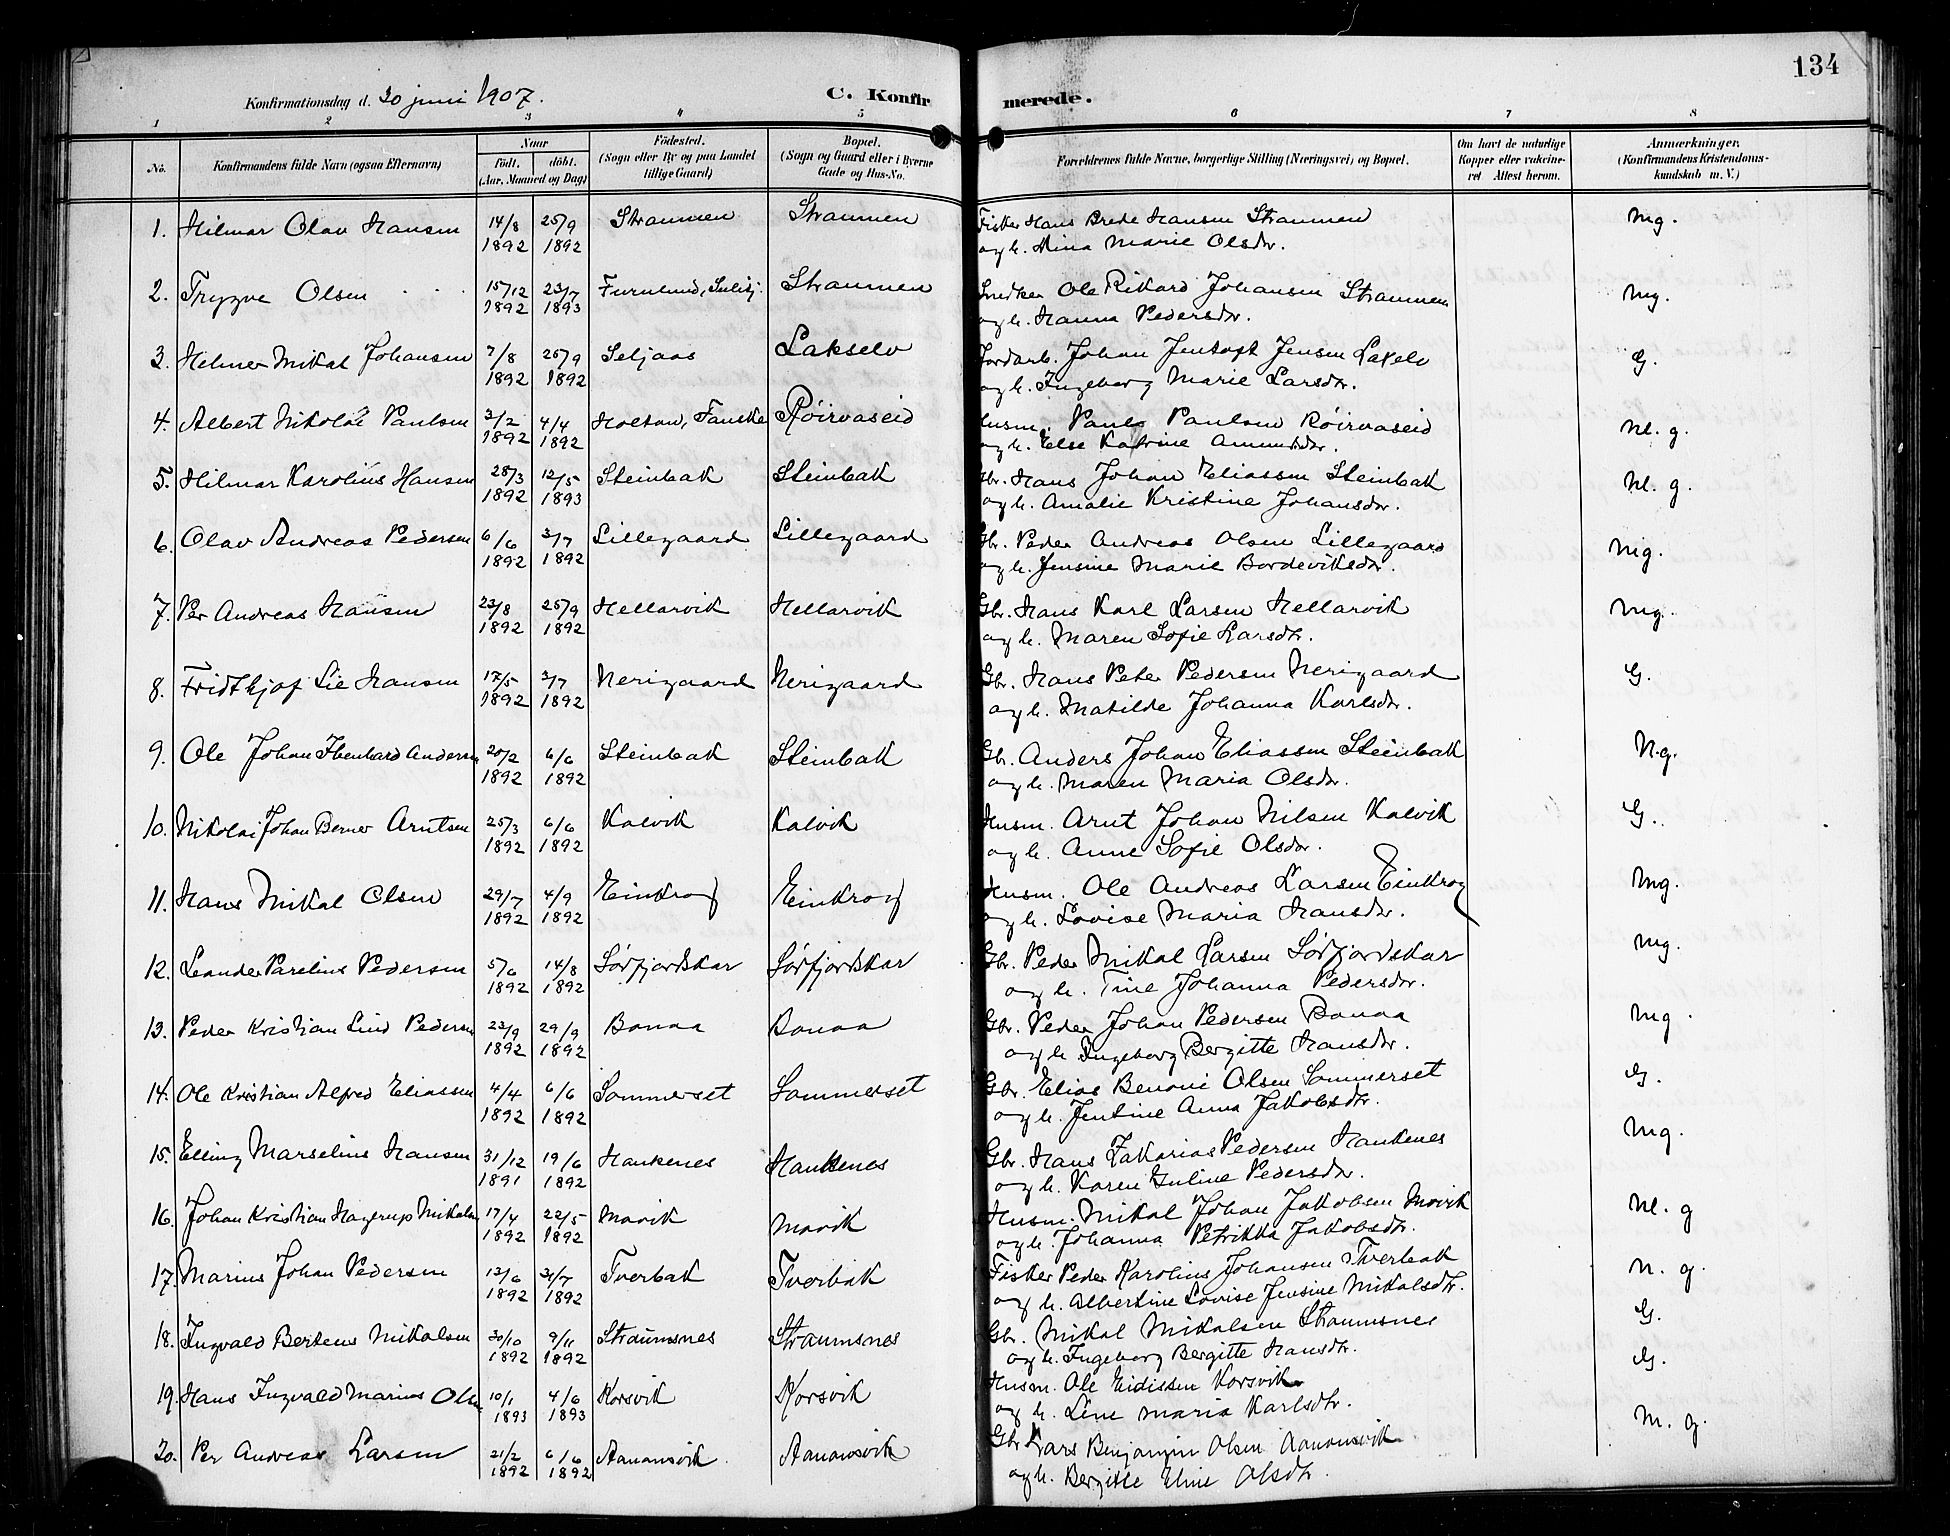 134
Konfirmationsdag d. 30 juni 1907.
C. Konfirmerede.
1 2 3 4 5 6 7 8
No. Konfirmandens fulde Navn (ogsaa Efternavn) Naar født. døbt. (Aar, Maaned og Dag) Fødested. (Sogn eller By og paa Landet tillige Gaard) Bopæl. (Sogn og Gaard eller i Byerne Gade og Hus-No. Forældrenes fulde Navne, borgerlige Stilling (Næringsvei) og Bopæl. Om havt de naturlige Kopper eller vakcineret Attest herom. Anmærkninger. (Konfirmandens Kristendomskundskab m. V.)
1. Hilmar Olav Hansen 14/8 1892 25/9 1892 Straumen Straumen Fisker Hans Brede Hansen Straumen Mg.
og h. Mina Marie Olsdr.
2. Trygve Olsen 15/12 1892 23/7 1893 Furulund, Sulitj. Straumen Snedker Ole Rikard Johansen Straumen Mg.
og h. Hanna Pedersdr.
3. Hilmer Mikal Johansen 7/8 1892 25/9 1892 Seljaas Lakselv Jordarb. Johan Jentoft Jensen Laxelv G.
og h. Ingeborg Marie Larsdr.
4. Albert Nikolai Paulsen 3/2 1892 4/4 1892 Holtan, Fauske Røirvaseid Husm. Paul Paulsen Røirvaseid Nl. g.
og h. Else Katrine
5. Hilmar Karolius Hansen 28/3 1892 12/5 1893 Steinbak Steinbak Gbr. Hans Johan Eliassen Steinbak Nl. g.
og h. Amalie Kristine Johansdr.
6. Olav Andreas Pedersen 6/6 1892 3/7 1892 Lillegaard Lillegaard Gbr. Peder Andreas Olsen Lillegaard Mg.
og h. Jensine Marie Bordeviksdr.
7. Per Andreas Hansen 23/8 1892 25/9 1892 Hellarvik Hellarvik Gbr. Hans Karl Larsen Hellarvik Mg.
og h. Maren Sofie Larsdr.
8. Fridthjof Lie Hansen 17/5 1892 3/7 1892 Nerigaard Nerigaard Gbr. Hans Peter Pedersen Nerigaard G.
og h. Matilde Johanna Karlsdr.
9. Ole Johan Ibenhard Andersen 20/2 1892 6/6 1892 Steinbak Steinbak Gbr. Anders Johan Eliassen Steinbak N.g.
og h. Maren Maria Olsdr.
10. Nikolai Johan Berner Arntsen 25/3 1892 6/6 1892 Kalvik Kalvik Husm. Arnt Johan Nilsen Kalvik G.
og h. Anne Sofie Olsdr.
11. Hans Mikal Olsen 29/7 1892 4/9 1892 Einkrog Einkrog Husm. Ole Andreas Larsen Einkrog Mg.
og h. Lovise Maria Hansdr.
12. Leander Parelius Pedersen 5/6 1892 14/8 1892 Sørfjordskar Sørfjordskar Gbr. Peder Mikal Larsen Sørfjordskar Mg.
og h. Tine Johanna Pedersdr.
13. Peder Kristian Lind Pedersen 23/9 1892 29/9 1892 Bonaa Bonaa Gbr. Peder Johan Pedersen Bonaa Mg.
og h. Ingeborg Bergitte Hansdr.
14. Ole Kristian Alfred Eliassen 4/4 1892 6/6 1892 Sommerset Sommerset Gbr. Elias Benoni Olsen Sommerset G.
og h. Jentine Anna Jakobsdr.
15. Elling Marselius Hansen 31/12 1891 19/6 1892 Haukenes Haukenes Gbr. Hans Zakarias Pedersen Haukenes Mg.
og h. Karen Guline Pedersdr.
16. Johan Kristian Hagerup Mikalsen 17/4 1892 22/5 1892 Movik Movik Husm. Mikal Johan Jakobsen Movik Nl. g
og h. Johanna Petrikka Jakobsdr.
17. Marius Johan Pedersen 13/6 1892 31/7 1892 Tverbak Tverbak Fisker Peder Karolius Johansen Tverbak N. g.
og h. Albertine Lovise Jensine Mikalsdr.
18. Ingvald Berteus Mikalsen 30/10 1892 9/11 1892 Straumsnes Straumsnes Gbr. Mikal Mikalsen Straumsnes G.
og h. Ingeborg Bergitte Hansdr.
19. Hans Ingvald Marius Olsen 10/1 1893 4/6 1893 Korsvik Korsvik Husm. Ole Eidissen Korsvik G.
og h. Line Maria Karlsdr.
20. Per Andreas Larsen 21/2 1892 6/6 1892 Aanonsvik Aanonsvik Gbr. Lars Benjamin Olsen Aanonsvik M. g.
og h. Bergitte Eline Olsdr.